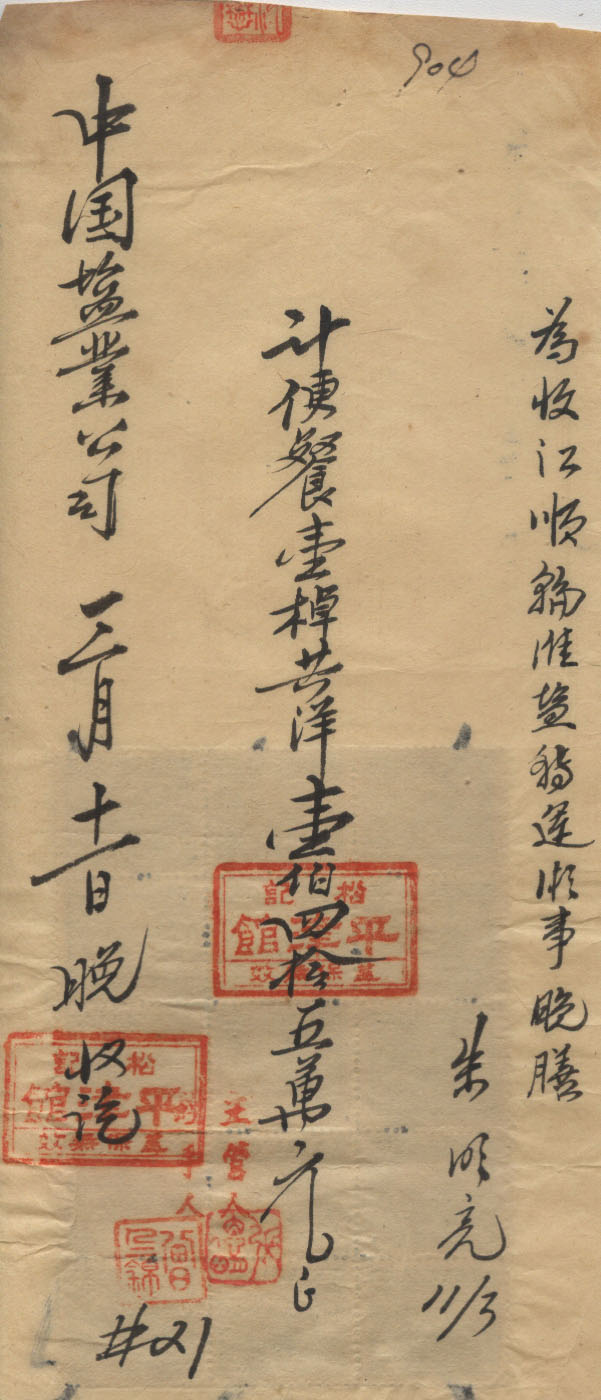 904
為收江順輪淮盐運事晚膳
朱明亮 11/3
计便餐壹棹共洋壹佰四拾五萬元正
松記
平館
主管人
手人
中国盐業公司 三月十一日晚收讫
松記
平館
#21